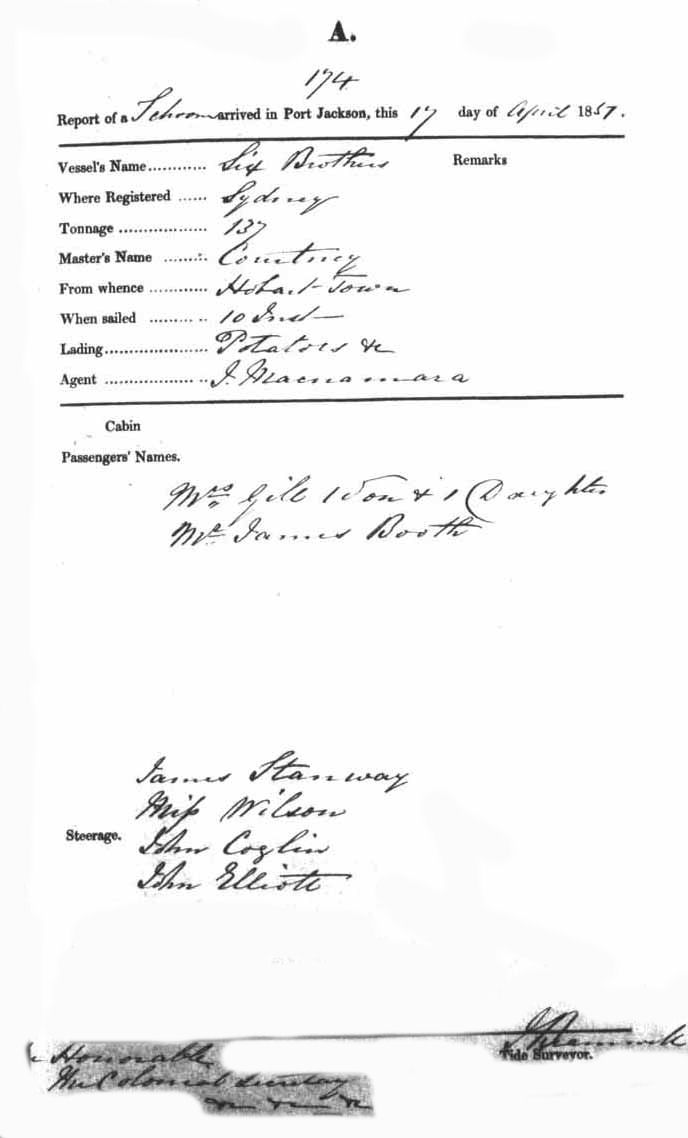 A.
174
Report of a Schooner arrived in Port Jackson, this 17 day of April 1857.
Vessel's Name ............ Six Brothers Remarks
Where Registered ...... Sydney
Tonnage .................. 137
Master's Name ........ Courtney
From whence ............ Hobart Town
When sailed ............ 10 Inst
Lading..................... Potatoes &c
Agent ..................... J. Macnamara
Cabin
Passengers' Names.
Mrs Gill 1 Son & 1 Daughter
Mr James Booth
James Stanway
Miss Wilson
Steerage. John Coglin
John Elliott
Tide Surveyor.
Honorable
The Colonial Secretary
&c &c &c